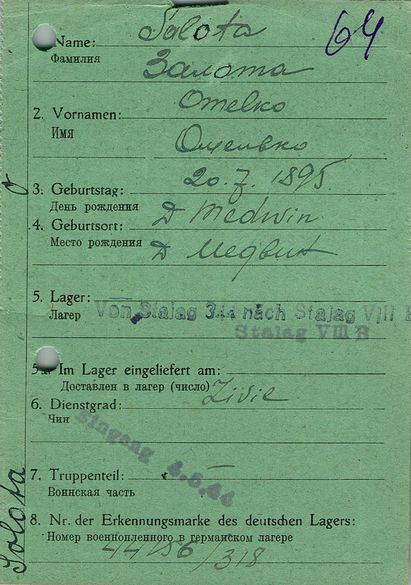 64
Name: Solota
Фамилия Залота
2. Vornamen: Omelko
Имя Омелько
3. Geburtstag: 20.7.1895
День рождения
4. Geburtsort: D Medwin
Место рождения Д Медвин
5. Lager: Von Stalag 344 nach Stalag VIII B
Лагер Stalag VIII B
Im Lager eingeliefert am:
Доставлен в лагер (число)
6. Dienstgrad: Zivil
Чин
Eingang 4.5.44
7. Truppenteil: —
Воинская часть
8. Nr. der Erkennungsmarke des deutschen Lagers:
Номер военнопленного в германском лагере
44186/318
Solota